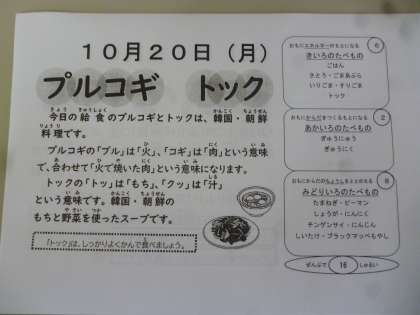 10月20日（月）
プルコギ　トック
今日の給食のプルコギとトックは、韓国・朝鮮
料理です。
プルコギの「プル」は「火」、「コギ」は「肉」という意味
で、合わせて「火で焼いた肉」という意味になります。
トックの「トッ」は「もち」、「クッ」は「汁」
という意味です。韓国・朝鮮の
もちと野菜を使ったスープです。
『トック』は、しっかりよくかんで食べましょう。
おもにエネルギーのもとになる
6
きいろのたべもの
ごはん
さとう・ごまあぶら
いりごま・すりごま
トック
おもにからだをつくるもとになる
2
あかいろのたべもの
ぎゅうにゅう
ぎゅうにく
おもにからだのちょうしをととのえる
8
みどりいろのたべもの
たまねぎ・ピーマン
しょうが・にんにく
チンゲンサイ・にんじん
しいたけ・ブラックマッペもやし
ぜんぶで 16 しゅるい